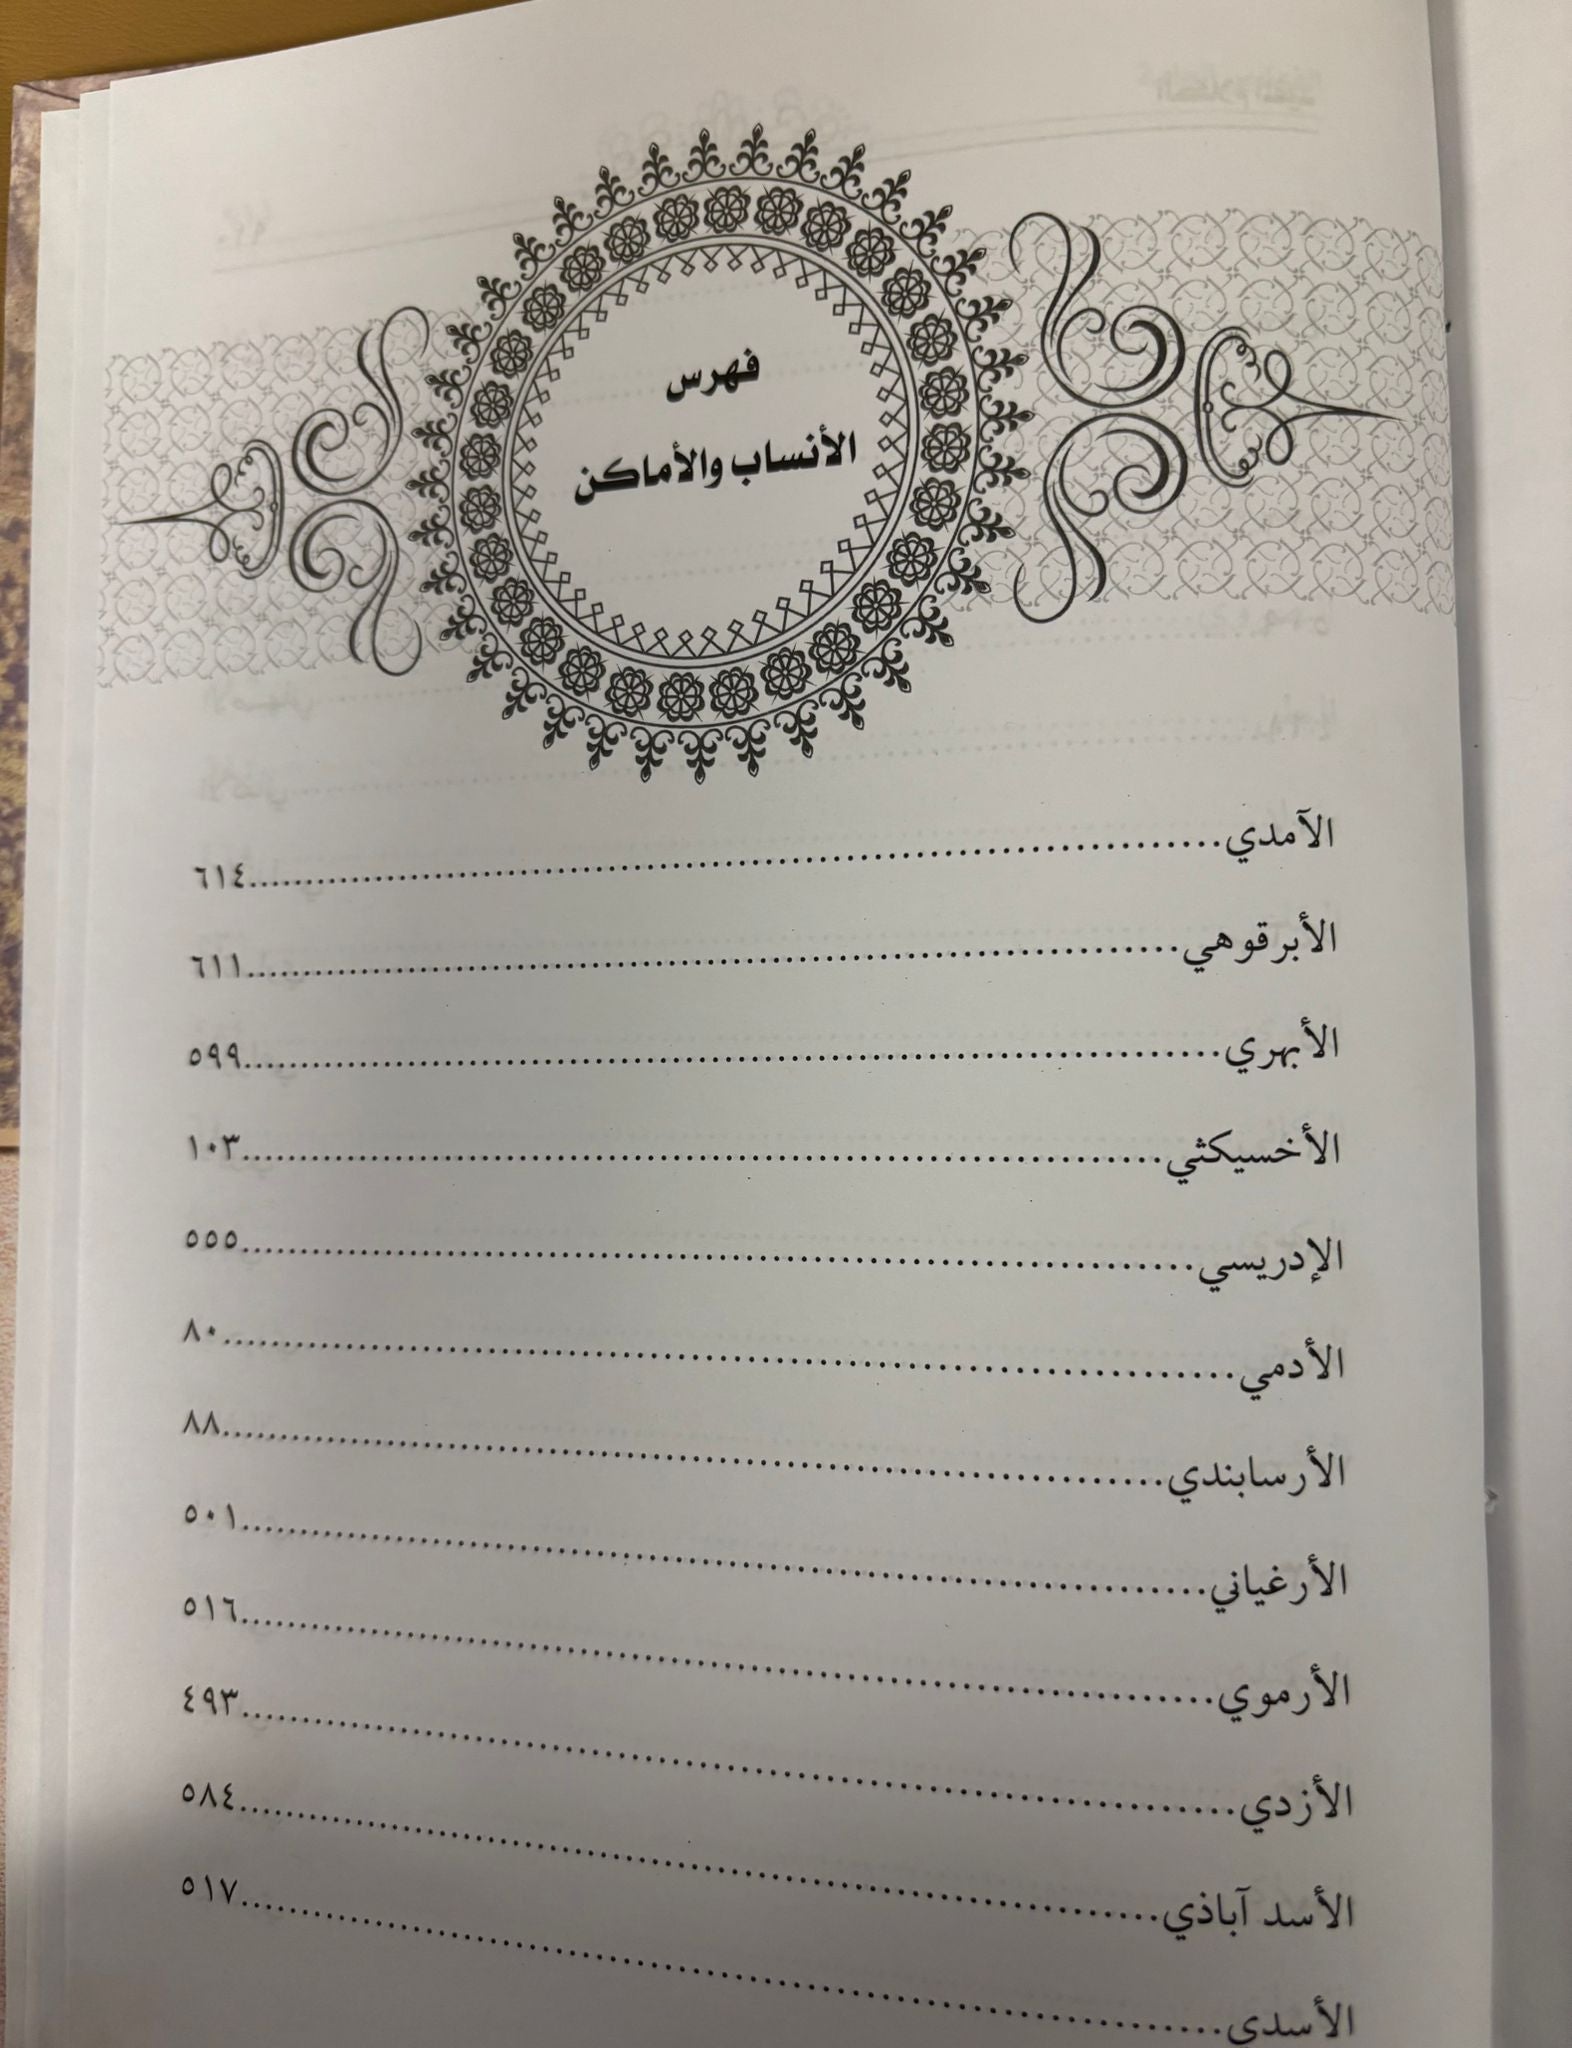 فهرس
الأنساب والأماكن
الآمدي.....٦١٤
الأبرقوهي.....٦١١
الأبهري.....٥٩٩
الأخسيكثي.....١٠٣
الإدريسي.....٥٥٥
الأدمي.....٨٠
الأرسابندي.....٨٨
الأرغياني.....٥٠١
الأرموي.....٥١٦
الأزدي.....٤٩٣
الأسد آباذي.....٥٨٤
الأسدي.....٥١٧